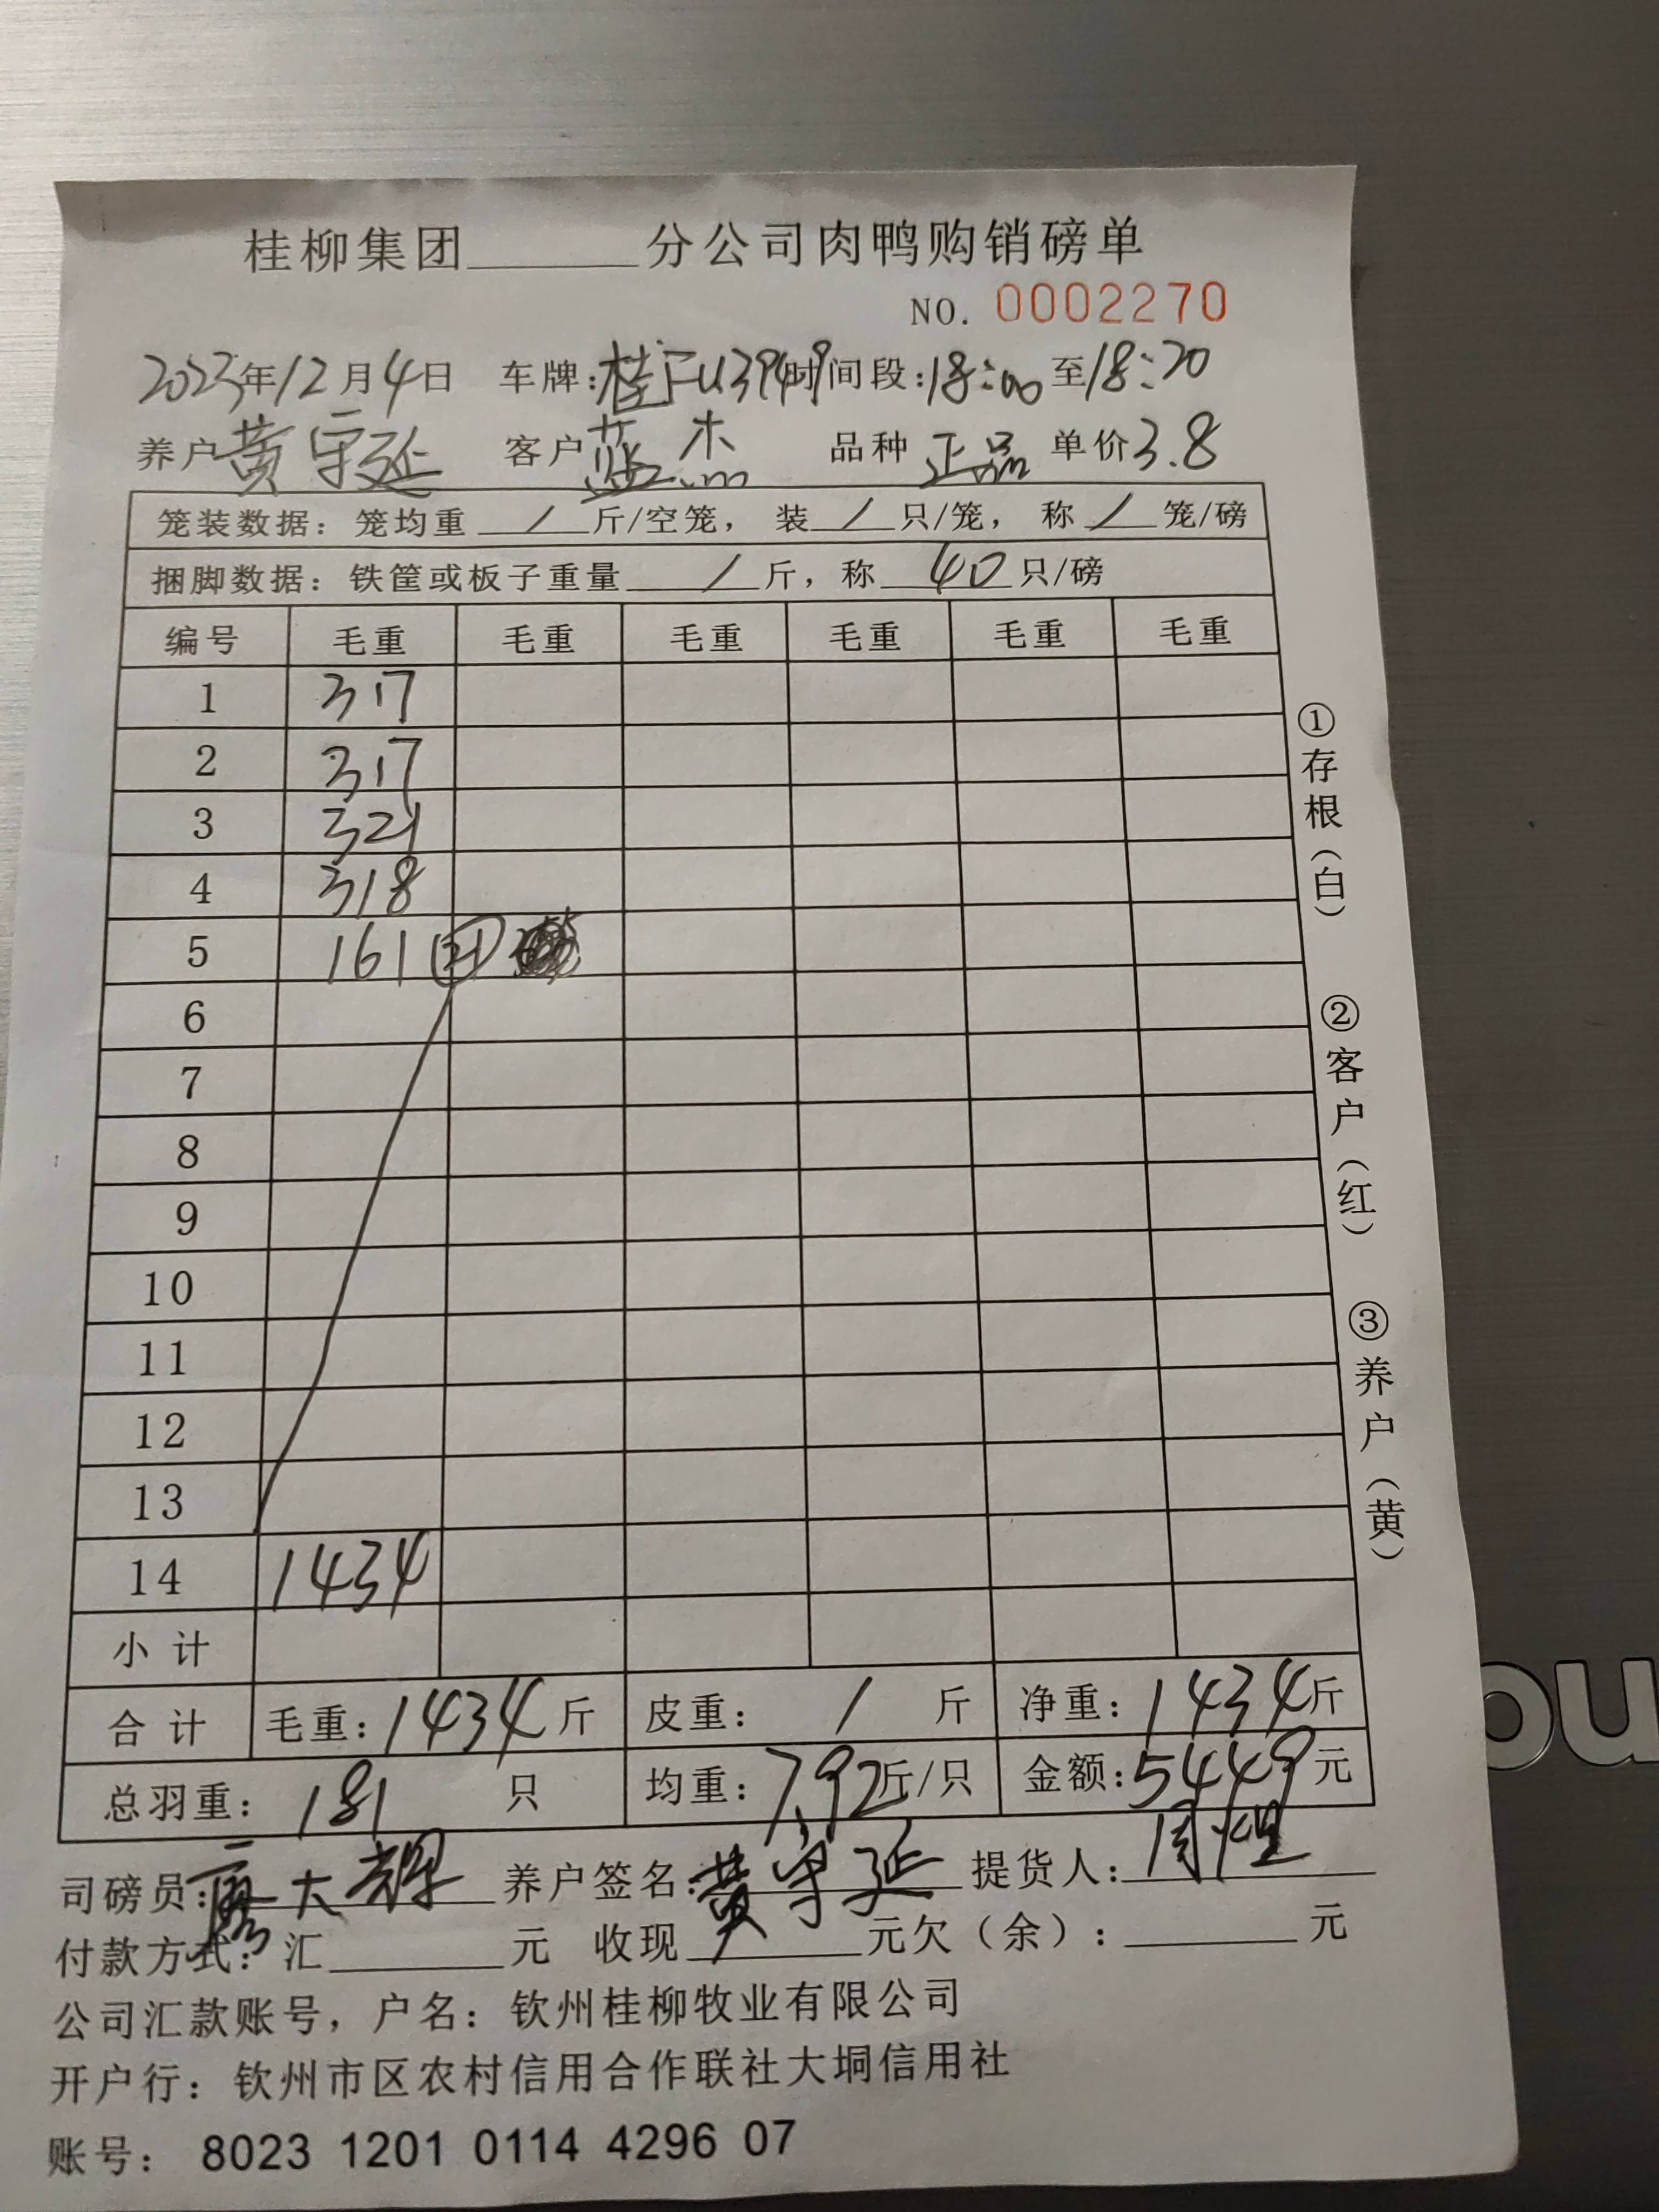 桂柳集团______分公司肉鸭购销磅单
NO. 0002270
2023年12月4日 车牌:桂FU3949 时间段:18:00至18:20
养户 黄守延 客户 蓝杰 品种 正品 单价3.8
笼装数据: 笼均重 / 斤/空笼, 装 / 只/笼, 称 / 笼/磅
捆脚数据: 铁筐或板子重量 / 斤, 称 40 只/磅
编号 毛重 毛重 毛重 毛重 毛重 毛重
1 317
2 317
3 321
4 318
5 161 (21)
6
7
8
9
10
11
12
13
14 1434
小计
合计 毛重:1434斤 皮重: / 斤 净重:1434斤
总羽重: 181 只 均重:7.92斤/只 金额:5449元
司磅员:廖大辉 养户签名:黄守延 提货人:
付款方式:汇______元 收现______元欠(余):______元
公司汇款账号,户名:钦州桂柳牧业有限公司
开户行:钦州市区农村信用合作联社大垌信用社
账号: 8023 1201 0114 4296 07
①存根(白)
②客户(红)
③养户(黄)
ou